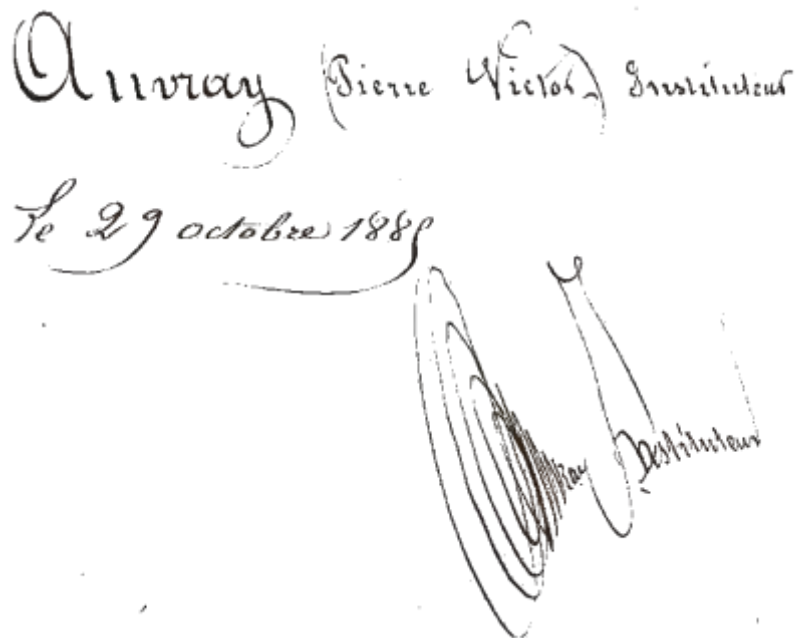 Auvray (Pierre Victor) Instituteur
Le 29 octobre 1885
Auvray Instituteur